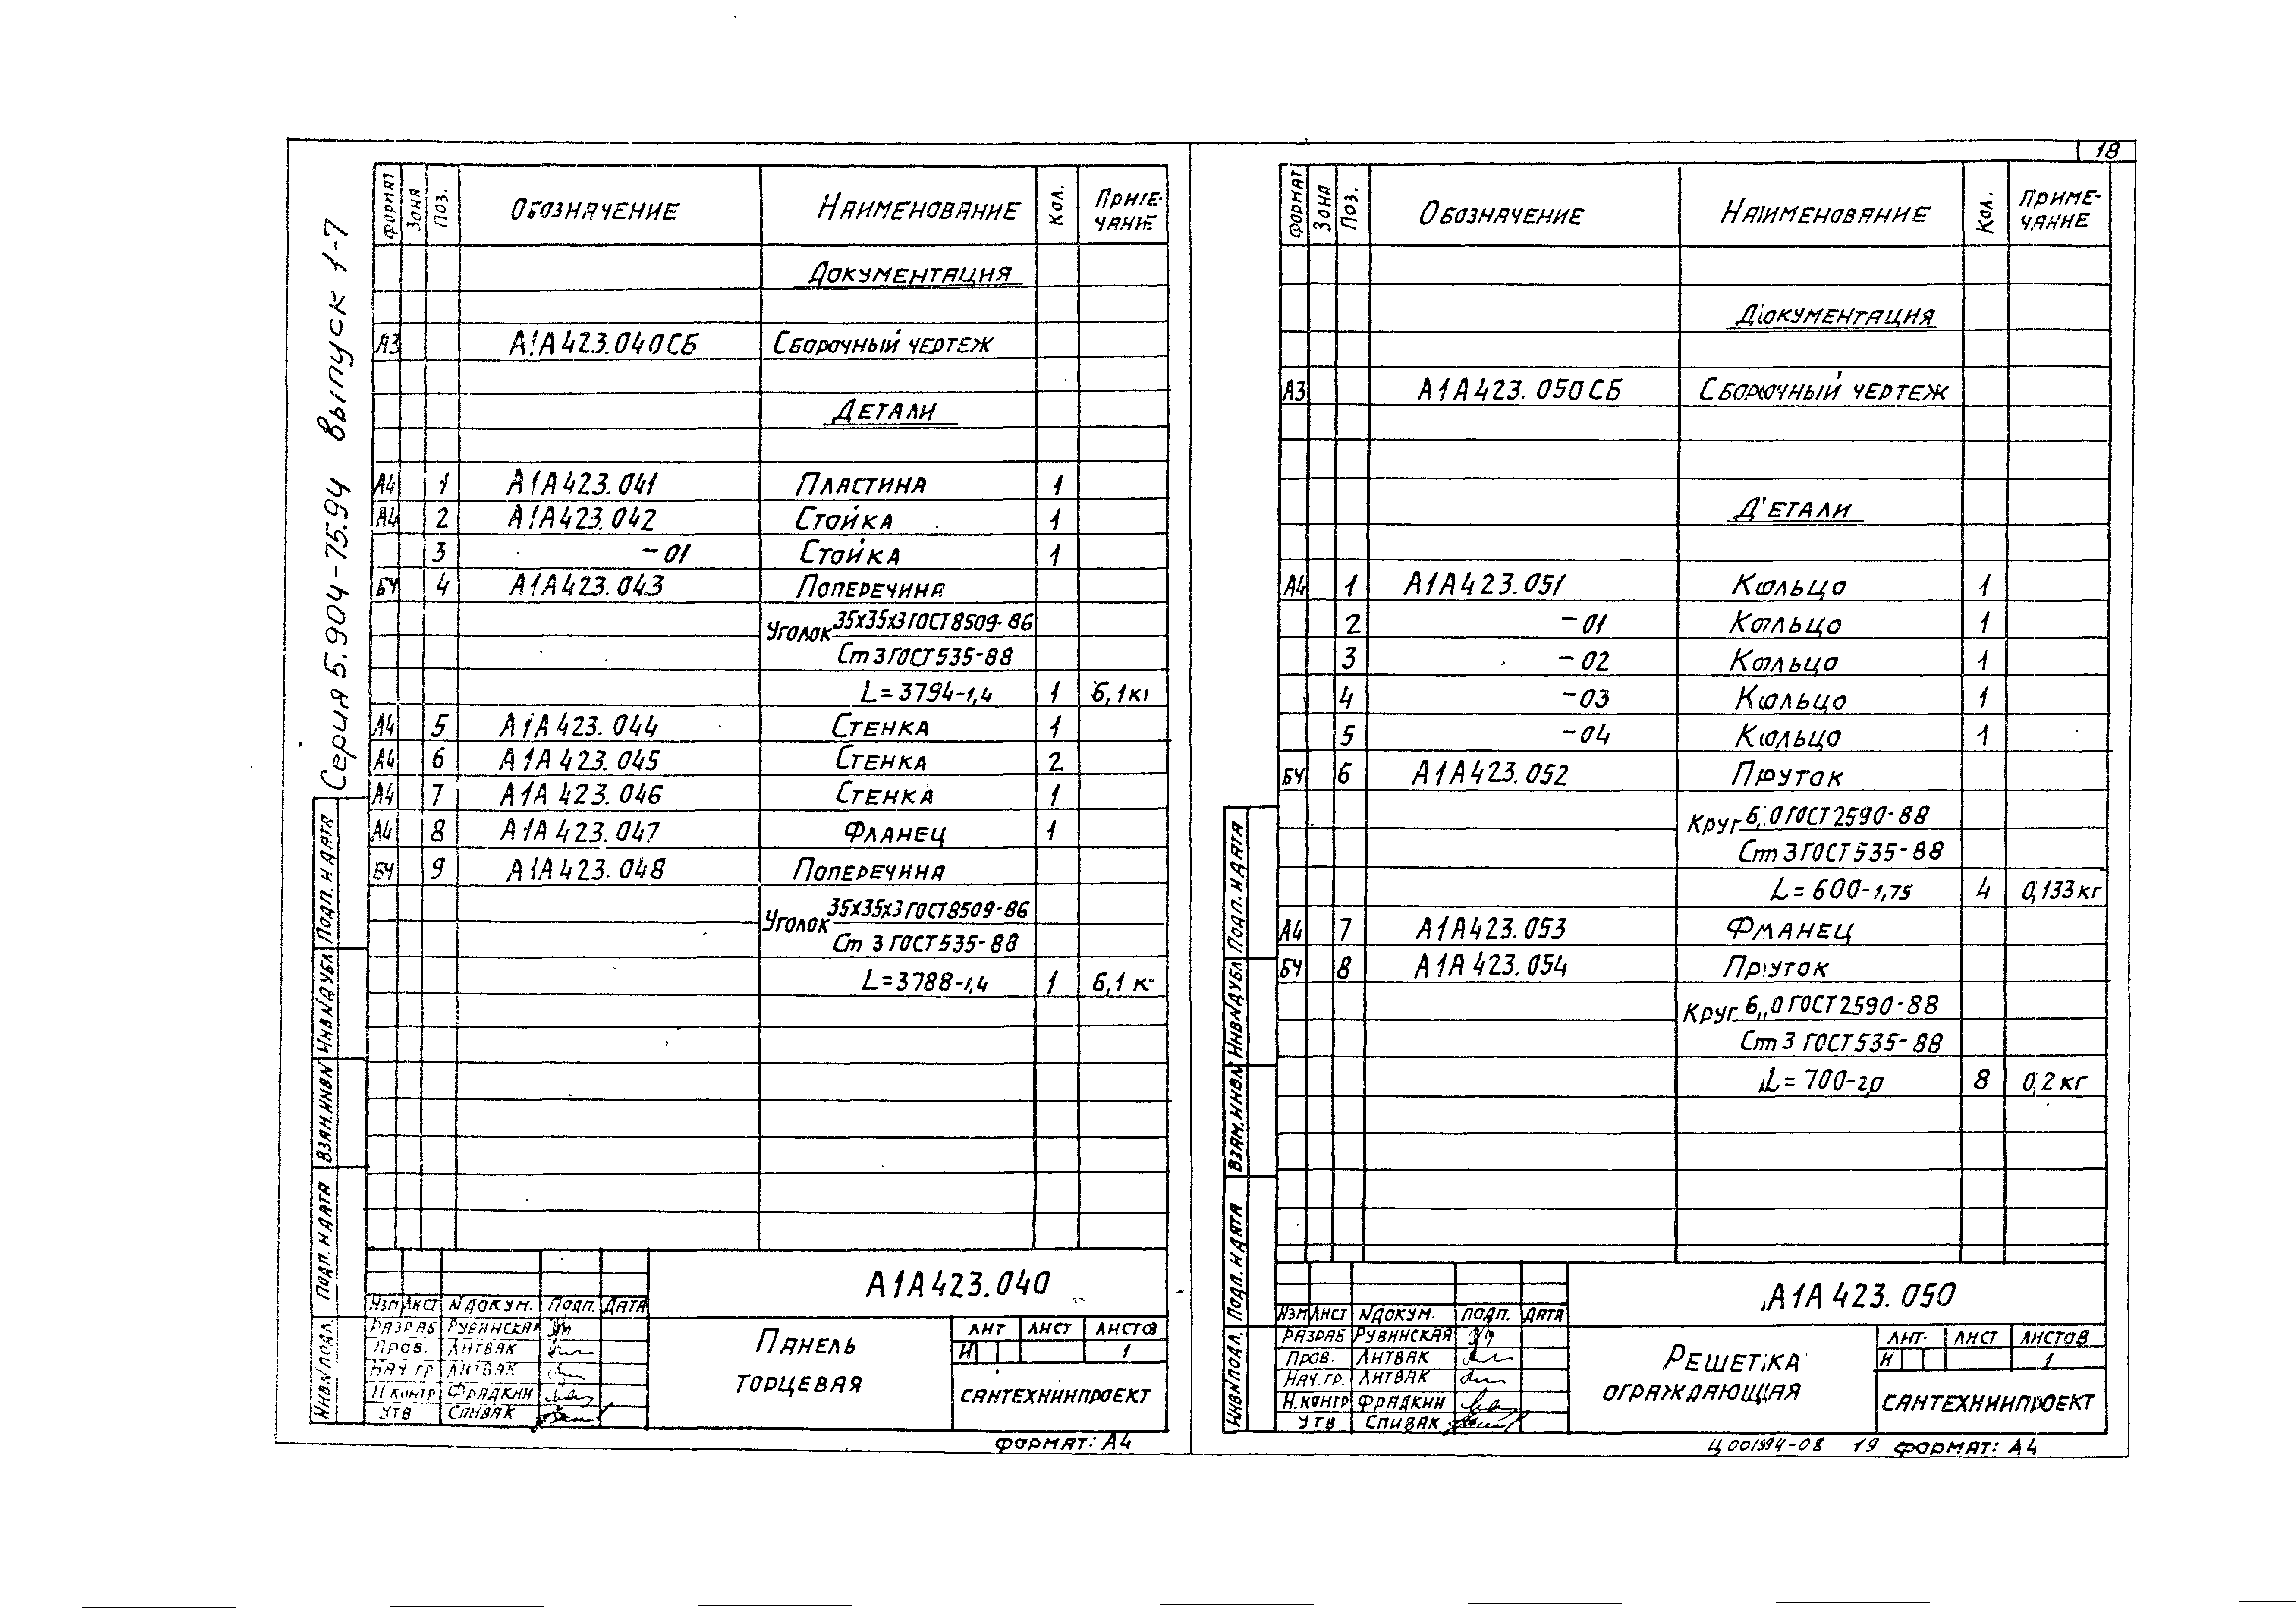 18
Серия 5.904-75.94 Выпуск 1-7
Формат Зона Поз. Обозначение Наименование Кол. Примечание
Документация
А3 А1А423.040СБ Сборочный чертеж
Детали
А4 1 А1А423.041 Пластина 1
А4 2 А1А423.042 Стойка 1
3 -01 Стойка 1
БЧ 4 А1А423.043 Поперечина
Уголок 35х35х3 ГОСТ 8509-86
Ст 3 ГОСТ 535-88
L=3794-1,4 1 6,1 кг
А4 5 А1А423.044 Стенка 1
А4 6 А1А423.045 Стенка 2
А4 7 А1А423.046 Стенка 1
А4 8 А1А423.047 Фланец 1
БЧ 9 А1А423.048 Поперечина
Уголок 35х35х3 ГОСТ 8509-86
Ст 3 ГОСТ 535-88
L=3788-1,4 1 6,1 к
Инв.N подл. Подп. и дата Взам. инв.N Инв.N дубл Подп. и дата
А1А423.040
Изм Лист N докум. Подп. Дата
Разраб Рувинская
Пров. Литвак
Нач гр Литвак
Н контр Фрадкин
Утв Спивак
Панель
торцевая
Лит Лист Листов
И 1
Сантехниипроект
Формат: А4
Формат Зона Поз. Обозначение Наименование Кол. Примечание
Документация
А3 А1А423.050СБ Сборочный чертеж
Детали
А4 1 А1А423.051 Кольцо 1
2 -01 Кольцо 1
3 -02 Кольцо 1
4 -03 Кольцо 1
5 -04 Кольцо 1
БЧ 6 А1А423.052 Пруток
Круг 6,0 ГОСТ 2590-88
Ст 3 ГОСТ 535-88
L=600-1,75 4 0,133 кг
А4 7 А1А423.053 Фланец
БЧ 8 А1А423.054 Пруток
Круг 6,0 ГОСТ 2590-88
Ст 3 ГОСТ 535-88
L=700-гр 8 0,2 кг
Инв.N подл. Подп. и дата Взам. инв.N Инв.N дубл Подп. и дата
А1А423.050
Изм Лист N докум. Подп. Дата
Разраб Рувинская
Пров. Литвак
Нач. гр. Литвак
Н.контр Фрадкин
Утв Спивак
Решетка
ограждающая
Лит. Лист Листов
И 1
Сантехниипроект
19 Формат: А4